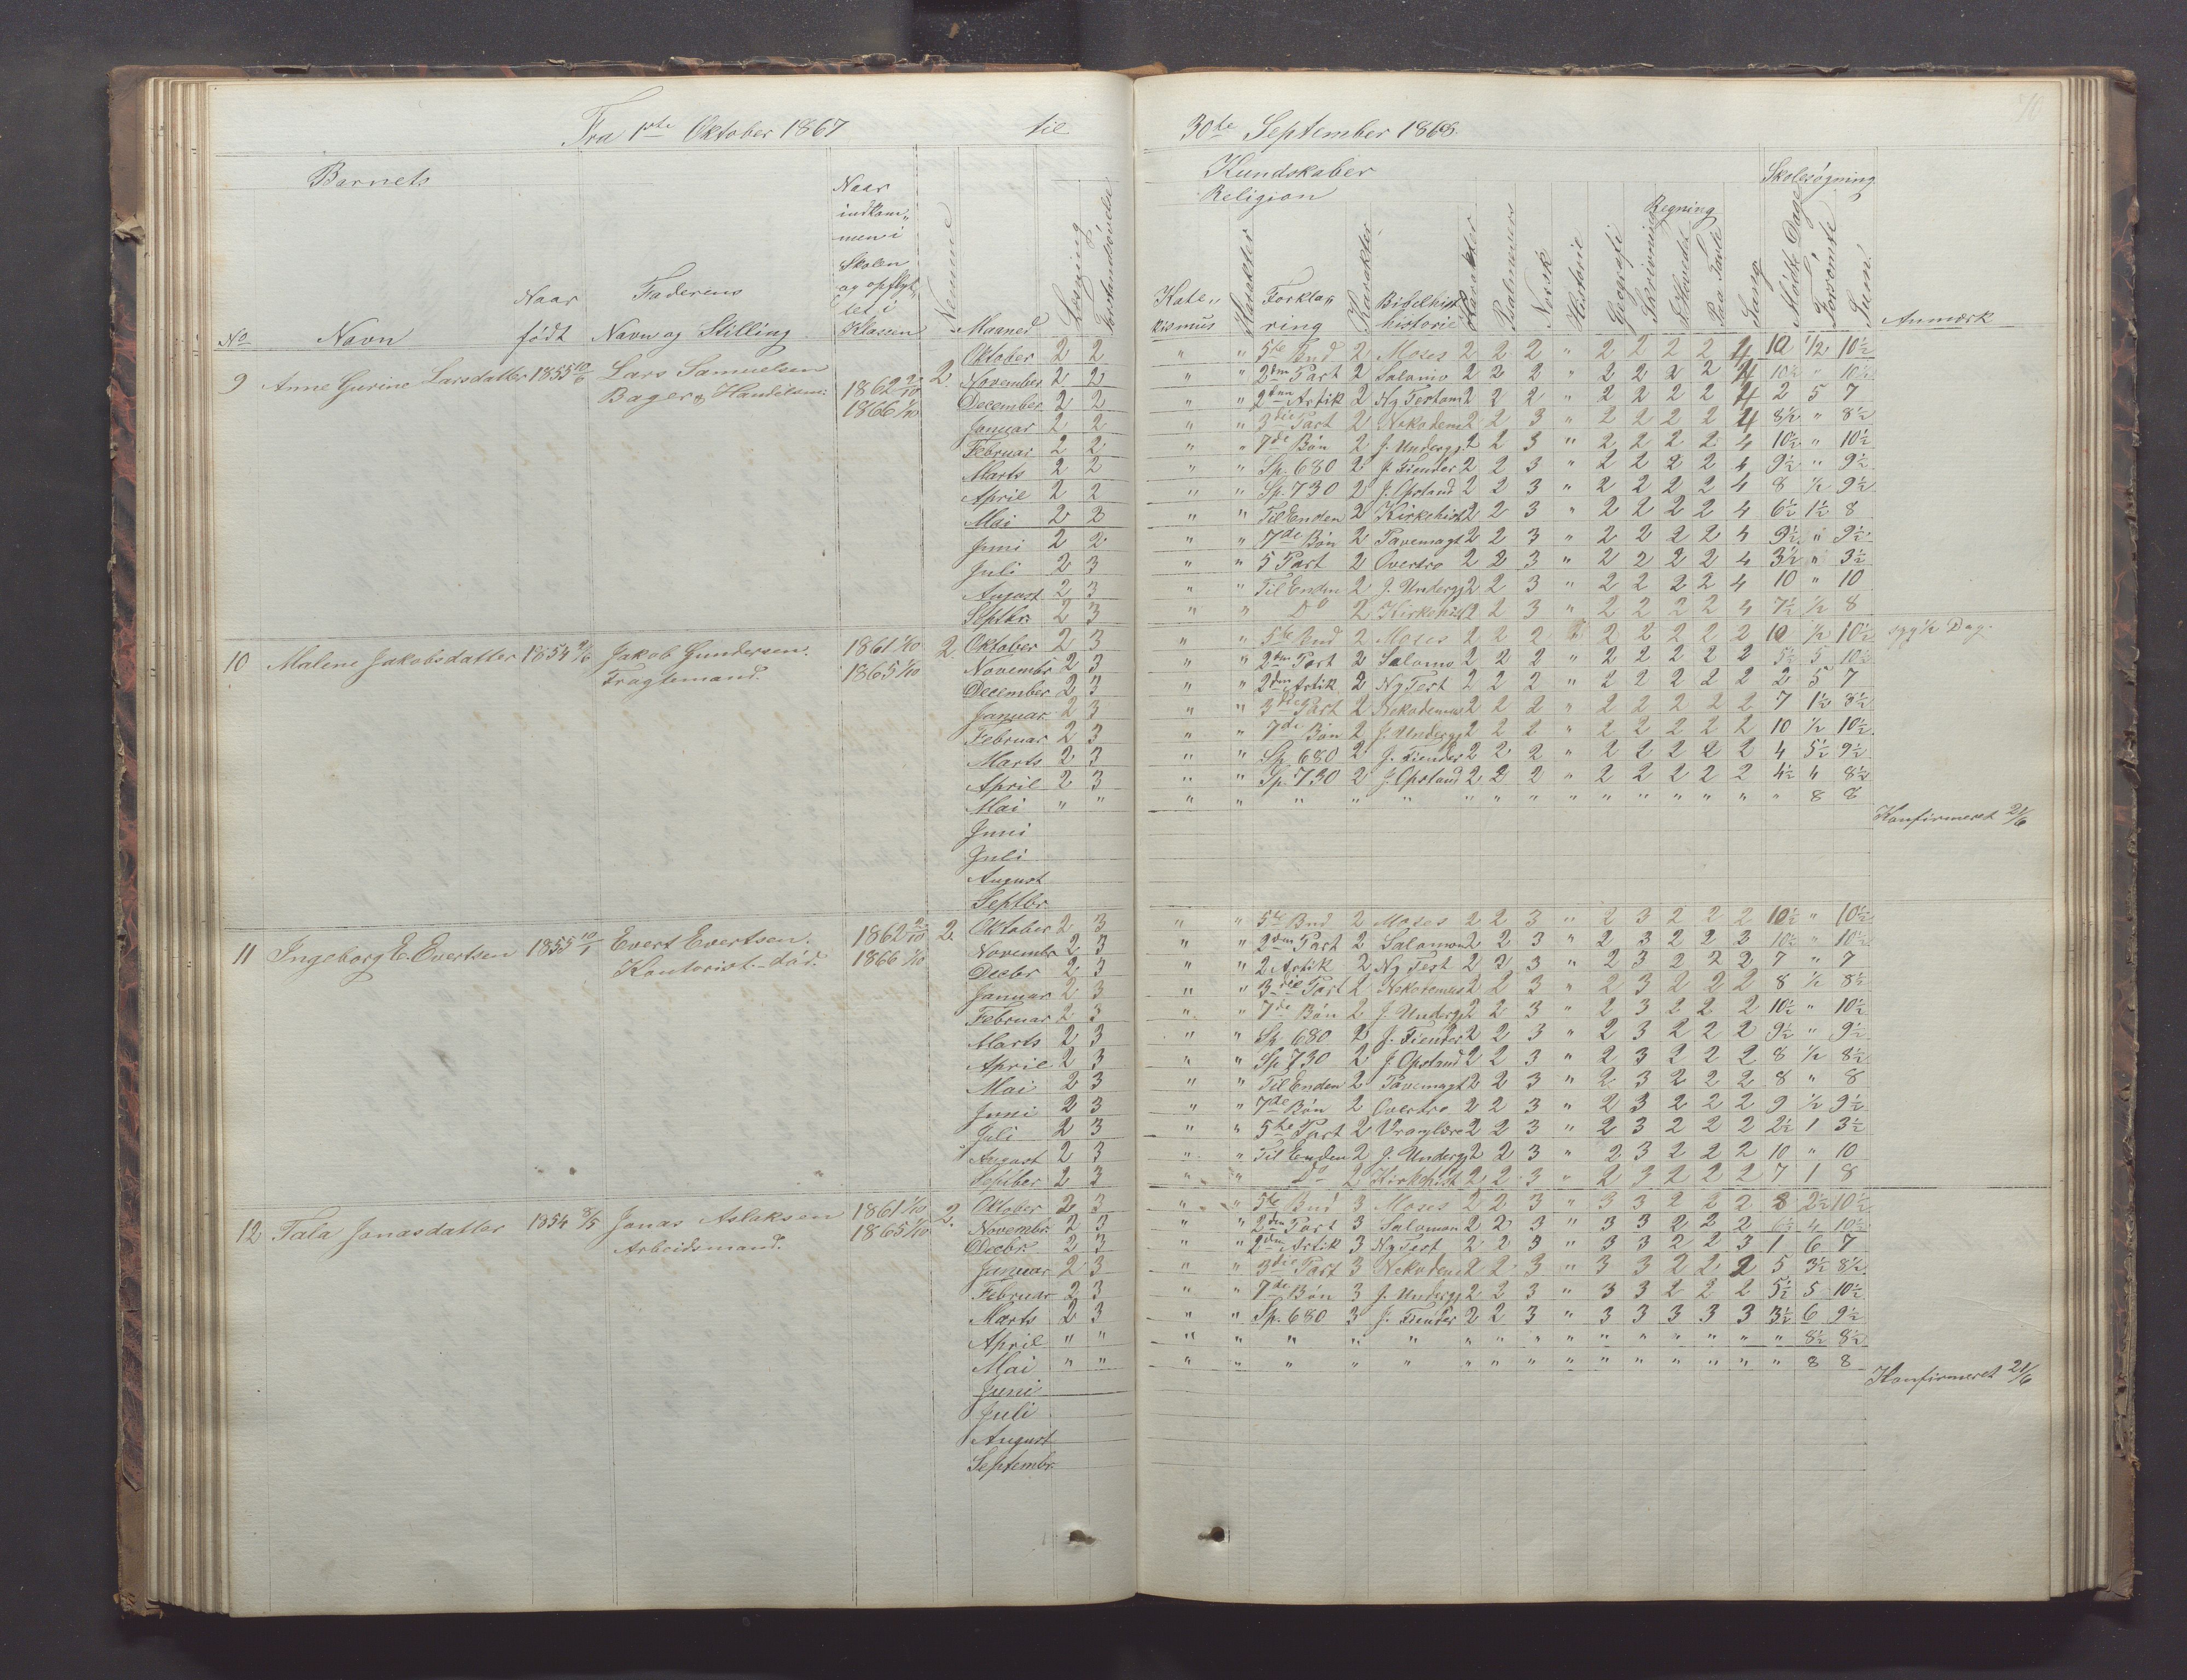 Fra 1ste Oktober 1867 til 30te September 1868.
Barnets
Kundskaber
Skolesøgning
Religion
Regning
No Navn
Naar født
Faderens Navn og Stilling
Naar indkommen i Skolen og opflyttet i Klassen
Nemme
Maaned
Læsning
Forstandsøvelse
Katekismus
Karakter
Forklaring
Karakter
Bibelhistorie
Karakter
Psalmevers
Norsk
Historie
Geografi
Skrivning
I Hovedet
Paa Tavle
Sang
Mødte Dage
Forsømte
Sum
Anmærk
9 Anne Gurine Larsdatter 1855 10/6 Lars Samuelsen 1862 2/10 2.
Bager & Handelsm. 1866 1/10
Oktober 2 2 " " 5te Bud 2 Moses 2 2 2 " 2 2 2 2 4 10 1/2 10½
November 2 2 " " 2den Part 2 Salomo 2 2 2 " 2 2 2 2 4 10½ " 10½
December 2 2 " " 2den Artik 2 Ny Testam 2 2 2 " 2 2 2 2 4 2 5 7
Januar 2 2 " " 3die Part 2 Nekodem 2 2 3 " 2 2 2 2 4 8½ " 8½
Februar 2 2 " " 7de Bøn 2 J. Undergj. 2 2 3 " 2 2 2 2 4 10½ " 10½
Marts 2 2 " " Sp. 680 2 J. Fiender 2 2 3 " 2 2 2 2 4 9½ " 9½
April 2 2 " " Sp. 730 2 J. Opstand 2 2 3 " 2 2 2 2 4 8 ½ 9½
Mai 2 2 " " Til Enden 2 Kirkehist 2 2 3 " 2 2 2 2 4 6½ 1½ 8
Juni 2 2 " " 7de Bøn 2 Pavemagt 2 2 3 " 2 2 2 2 4 9½ " 9½
Juli 2 3 " " 5 Part 2 Overtro 2 2 3 " 2 2 2 2 4 3½ " 3½
August 2 3 " " Til Enden 2 J. Undergj 2 2 3 " 2 2 2 2 4 10 " 10
Septbr. 2 3 " " Do 2 Kirkehist 2 2 3 " 2 2 2 2 4 7½ ½ 8
10 Malene Jakobsdatter 1854 Jakob Gundersen. 1861 1/10 2.
Fragtemand. 1865 1/10
Oktober 2 3 " " 5te Bud 2 Moses 2 2 2 2 2 2 2 2 10 ½ 10½ syg ½ Dag.
Novembr 2 3 " " 2den Part 2 Salomo 2 2 2 " 2 2 2 2 2 5½ 5 10½
December 2 3 " " 2den Artik 2 Ny Test 2 2 2 " 2 2 2 2 2 2 5 7
Januar 2 3 " " 3die Part 2 Nekodemus 2 2 2 " 2 2 2 2 2 7 1½ 8½
Februar 2 3 " " 7de Bøn 2 J. Undergj 2 2 2 " 2 2 2 2 2 10 ½ 10½
Marts 2 3 " " Sp. 680 2 J. Fiender 2 2 2 " 2 2 2 2 2 4 5½ 9½
April 2 3 " " Sp. 730 2 J. Opstand 2 2 2 " 2 2 2 2 2 4½ 4 8½
Mai " " " " " " " " " " " " " " " " " 8 8
Konfirmeret 21/6
Juni
Juli
August
Septbr.
11 Ingeborg E. Evertsen 1855 10/1 Evert Evertsen. 1862 2/10 2.
Kontorist.- død. 1866 1/10
Oktober 2 3 " " 5te Bud 2 Moses 2 2 3 " 2 3 2 2 2 10½ " 10½
Novembr 2 3 " " 2den Part 2 Salomon 2 2 3 " 2 3 2 2 3 10½ " 10½
Decbr 2 3 " " 2 Artik 2 Ny Test 2 2 3 " 2 3 2 2 2 7 " 7
Januar 2 3 " " 3die Part 2 Nekodemus 2 2 3 " 2 3 2 2 2 8 ½ 8½
Februar 2 3 " " 7de Bøn 2 J. Undergj 2 2 3 " 2 3 2 2 2 10½ " 10½
Marts 2 3 " " Sp. 680 2 J. Fiender 2 2 3 " 2 3 2 2 2 9½ " 9½
April 2 3 " " Sp. 730 2 J. Opstand 2 2 3 " 2 3 2 2 2 8 ½ 8½
Mai 2 3 " " Til Enden 2 Pavemagt 2 2 3 " 2 3 2 2 2 8 " 8
Juni 2 3 " " 7de Bøn 2 Overtro 2 2 3 " 2 3 2 2 2 9 ½ 9½
Juli 2 3 " " 5te Part 2 Vranglære 2 2 3 " 2 3 2 2 2 2½ 1 3½
August 2 3 " " Til Enden 2 J. Undergj 2 2 3 " 2 3 2 2 2 10 " 10
Septber 2 3 " " Do 2 Kirkehist 2 2 3 " 2 3 2 2 2 7 1 8
12 Tala Jonasdatter 1854 8/5 Jonas Aslaksen 1861 1/10 2.
Arbeidsmand. 1865 1/10
Oktober 2 3 " " 5te Bud 3 Moses 2 2 3 " 3 3 2 2 2 8 2½ 10½
Novembr. 2 3 " " 2den Part 3 Salomon 2 2 3 " 3 3 2 2 2 6½ 4 10½
Decbr. 2 3 " " 2den Artik 3 Ny Test 2 2 3 " 3 3 2 2 3 1 6 7
Januar 2 3 " " 3die Part 3 Nekodem 2 2 3 " 3 3 2 2 2 5 3½ 8½
Februar 2 3 " " 7de Bøn 3 J. Undergj 2 2 3 " 3 3 2 2 2 5½ 5 10½
Marts 2 3 " " Sp. 680 3 J. Fiender 2 2 3 " 3 3 3 3 3 3½ 6 9½
April " " " " " " " " " " " " " " " " " 8½ 8½
Mai " " " " " " " " " " " " " " " " " 8 8
Konfirmeret 21/6
Juni
Juli
August
Septembr.